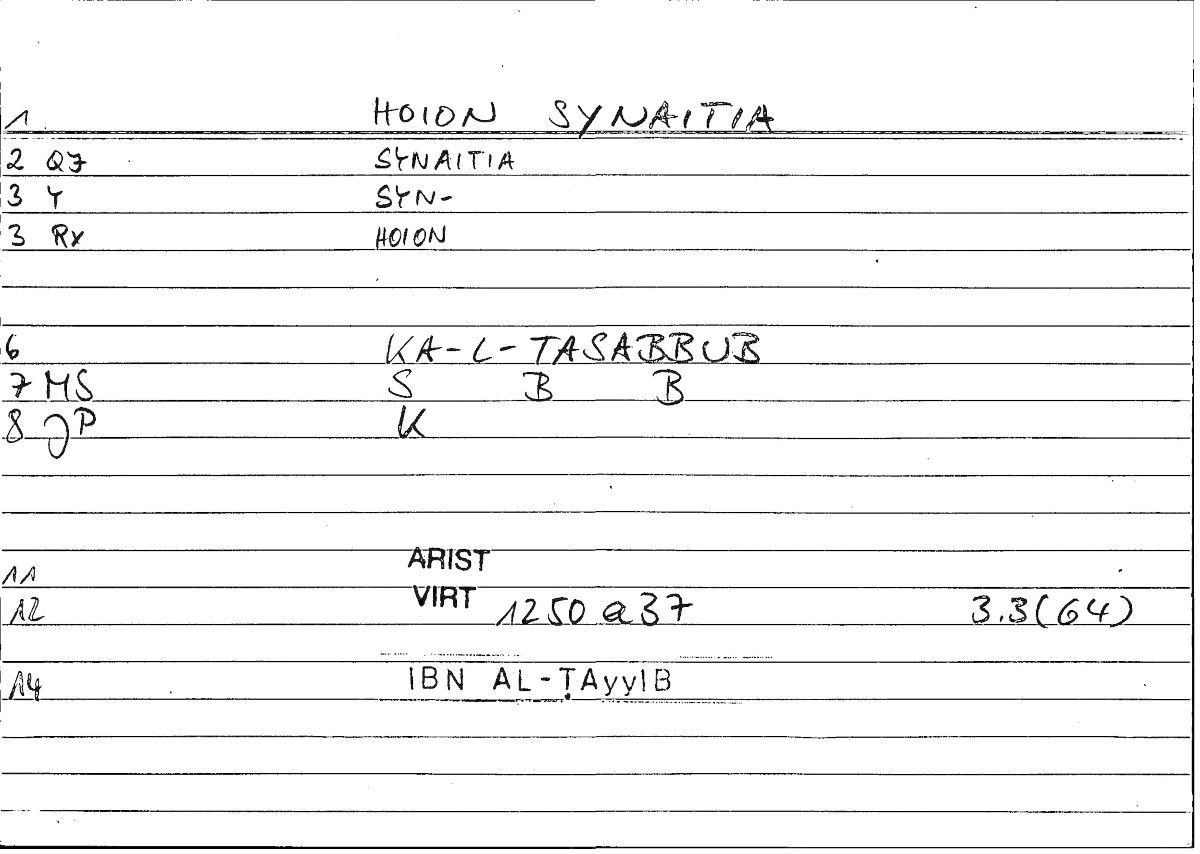 1 HOION SYNAITIA
2 QJ SYNAITIA
3 Y SYN-
3 Rx HOION
6 KA-L-TASABBUB
7 MS S B B
8 JP K
11 ARIST
12 VIRT 1250 a37 3.3(64)
14 IBN AL-ṬAyyIB